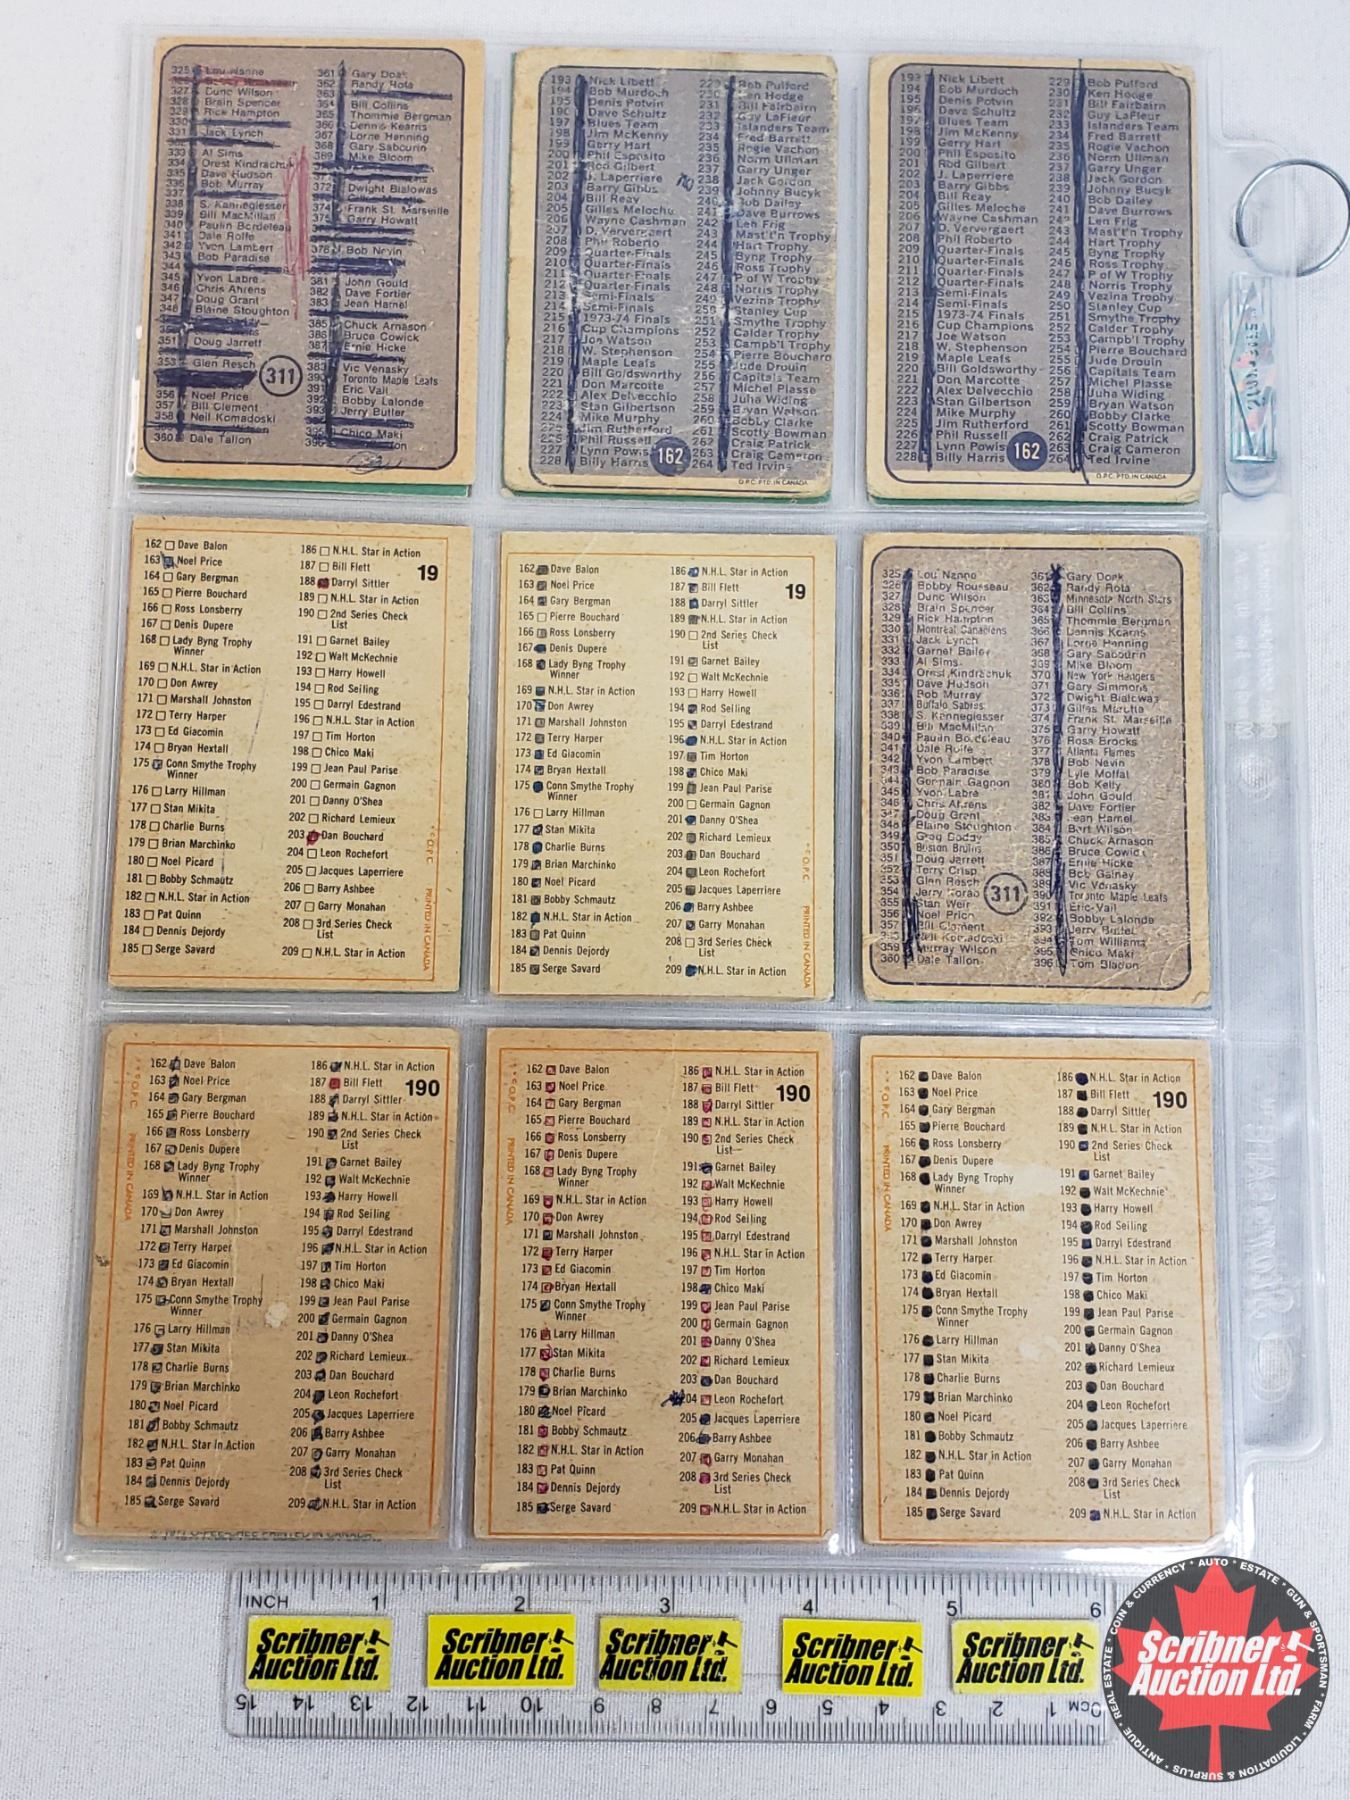 325 Lou Nanne
327 Dunc Wilson
328 Brain Spencer
329 Rick Hampton
331 Jack Lynch
333 Al Sims
334 Orest Kindrachuk
335 Dave Hudson
336 Bob Murray
338 S. Kannegiesser
339 Bill MacMillan
340 Paulin Bordeleau
341 Dale Rolfe
342 Yvon Lambert
343 Bob Paradise
345 Yvon Labre
346 Chris Ahrens
347 Doug Grant
348 Blaine Stoughton
351 Doug Jarrett
353 Glen Resch
356 Noel Price
357 Bill Clement
358 Neil Komadoski
360 Dale Tallon
361 Gary Doak
362 Randy Rota
364 Bill Collins
365 Thommie Bergman
366 Dennis Kearns
367 Lorne Henning
368 Gary Sabourin
369 Mike Bloom
372 Dwight Bialowas
374 Frank St. Marseille
375 Garry Howatt
378 Bob Nevin
381 John Gould
382 Dave Fortier
383 Jean Hamel
385 Chuck Arnason
386 Bruce Cowick
387 Ernie Hicke
389 Vic Venasky
390 Toronto Maple Leafs
391 Eric Vail
392 Bobby Lalonde
393 Jerry Butler
395 Chico Maki
311
193 Nick Libett
194 Bob Murdoch
195 Denis Potvin
196 Dave Schultz
197 Blues Team
198 Jim McKenny
199 Gerry Hart
200 Phil Esposito
201 Rod Gilbert
202 J. Laperriere
203 Barry Gibbs
204 Bill Reay
205 Gilles Meloche
206 Wayne Cashman
207 D. Ververgaert
208 Phil Roberto
209 Quarter-Finals
210 Quarter-Finals
211 Quarter-Finals
212 Quarter-Finals
213 Semi-Finals
214 Semi-Finals
215 1973-74 Finals
216 Cup Champions
217 Joe Watson
218 W. Stephenson
219 Maple Leafs
220 Bill Goldsworthy
221 Don Marcotte
222 Alex Delvecchio
223 Stan Gilbertson
224 Mike Murphy
225 Jim Rutherford
226 Phil Russell
227 Lynn Powis
228 Billy Harris
229 Bob Pulford
230 Ken Hodge
231 Bill Fairbairn
232 Guy LaFleur
233 Islanders Team
234 Fred Barrett
235 Rogie Vachon
236 Norm Ullman
237 Garry Unger
238 Jack Gordon
239 Johnny Bucyk
240 Bob Dailey
241 Dave Burrows
242 Len Frig
243 Mast't'n Trophy
244 Hart Trophy
245 Byng Trophy
246 Ross Trophy
247 P of W Trophy
248 Norris Trophy
249 Vezina Trophy
250 Stanley Cup
251 Smythe Trophy
252 Calder Trophy
253 Campb'l Trophy
254 Pierre Bouchard
255 Jude Drouin
256 Capitals Team
257 Michel Plasse
258 Juha Widing
259 Bryan Watson
260 Bobby Clarke
261 Scotty Bowman
262 Craig Patrick
263 Craig Cameron
264 Ted Irvine
162
O.P.C. PTD. IN CANADA
193 Nick Libett
194 Bob Murdoch
195 Denis Potvin
196 Dave Schultz
197 Blues Team
198 Jim McKenny
199 Gerry Hart
200 Phil Esposito
201 Rod Gilbert
202 J. Laperriere
203 Barry Gibbs
204 Bill Reay
205 Gilles Meloche
206 Wayne Cashman
207 D. Ververgaert
208 Phil Roberto
209 Quarter-Finals
210 Quarter-Finals
211 Quarter-Finals
212 Quarter-Finals
213 Semi-Finals
214 Semi-Finals
215 1973-74 Finals
216 Cup Champions
217 Joe Watson
218 W. Stephenson
219 Maple Leafs
220 Bill Goldsworthy
221 Don Marcotte
222 Alex Delvecchio
223 Stan Gilbertson
224 Mike Murphy
225 Jim Rutherford
226 Phil Russell
227 Lynn Powis
228 Billy Harris
229 Bob Pulford
230 Ken Hodge
231 Bill Fairbairn
232 Guy LaFleur
233 Islanders Team
234 Fred Barrett
235 Rogie Vachon
236 Norm Ullman
237 Garry Unger
238 Jack Gordon
239 Johnny Bucyk
240 Bob Dailey
241 Dave Burrows
242 Len Frig
243 Mast't'n Trophy
244 Hart Trophy
245 Byng Trophy
246 Ross Trophy
247 P of W Trophy
248 Norris Trophy
249 Vezina Trophy
250 Stanley Cup
251 Smythe Trophy
252 Calder Trophy
253 Campb'l Trophy
254 Pierre Bouchard
255 Jude Drouin
256 Capitals Team
257 Michel Plasse
258 Juha Widing
259 Bryan Watson
260 Bobby Clarke
261 Scotty Bowman
262 Craig Patrick
263 Craig Cameron
264 Ted Irvine
162
O.P.C. PTD. IN CANADA
162 Dave Balon
163 Noel Price
164 Gary Bergman
165 Pierre Bouchard
166 Ross Lonsberry
167 Denis Dupere
168 Lady Byng Trophy
Winner
169 N.H.L. Star in Action
170 Don Awrey
171 Marshall Johnston
172 Terry Harper
173 Ed Giacomin
174 Bryan Hextall
175 Conn Smythe Trophy
Winner
176 Larry Hillman
177 Stan Mikita
178 Charlie Burns
179 Brian Marchinko
180 Noel Picard
181 Bobby Schmautz
182 N.H.L. Star in Action
183 Pat Quinn
184 Dennis Dejordy
185 Serge Savard
186 N.H.L. Star in Action
187 Bill Flett
188 Darryl Sittler
189 N.H.L. Star in Action
190 2nd Series Check
List
191 Garnet Bailey
192 Walt McKechnie
193 Harry Howell
194 Rod Seiling
195 Darryl Edestrand
196 N.H.L. Star in Action
197 Tim Horton
198 Chico Maki
199 Jean Paul Parise
200 Germain Gagnon
201 Danny O'Shea
202 Richard Lemieux
203 Dan Bouchard
204 Leon Rochefort
205 Jacques Laperriere
206 Barry Ashbee
207 Garry Monahan
208 3rd Series Check
List
209 N.H.L. Star in Action
19
**O.P.C. PRINTED IN CANADA
162 Dave Balon
163 Noel Price
164 Gary Bergman
165 Pierre Bouchard
166 Ross Lonsberry
167 Denis Dupere
168 Lady Byng Trophy
Winner
169 N.H.L. Star in Action
170 Don Awrey
171 Marshall Johnston
172 Terry Harper
173 Ed Giacomin
174 Bryan Hextall
175 Conn Smythe Trophy
Winner
176 Larry Hillman
177 Stan Mikita
178 Charlie Burns
179 Brian Marchinko
180 Noel Picard
181 Bobby Schmautz
182 N.H.L. Star in Action
183 Pat Quinn
184 Dennis Dejordy
185 Serge Savard
186 N.H.L. Star in Action
187 Bill Flett
188 Darryl Sittler
189 N.H.L. Star in Action
190 2nd Series Check
List
191 Garnet Bailey
192 Walt McKechnie
193 Harry Howell
194 Rod Seiling
195 Darryl Edestrand
196 N.H.L. Star in Action
197 Tim Horton
198 Chico Maki
199 Jean Paul Parise
200 Germain Gagnon
201 Danny O'Shea
202 Richard Lemieux
203 Dan Bouchard
204 Leon Rochefort
205 Jacques Laperriere
206 Barry Ashbee
207 Garry Monahan
208 3rd Series Check
List
209 N.H.L. Star in Action
19
**O.P.C. PRINTED IN CANADA
325 Lou Nanne
326 Bobby Rousseau
327 Dunc Wilson
328 Brain Spencer
329 Rick Hampton
330 Montreal Canadiens
331 Jack Lynch
332 Garnet Bailey
333 Al Sims
334 Orest Kindrachuk
335 Dave Hudson
336 Bob Murray
337 Buffalo Sabres
338 S. Kannegiesser
339 Bill MacMillan
340 Paulin Bordeleau
341 Dale Rolfe
342 Yvon Lambert
343 Bob Paradise
344 Germain Gagnon
345 Yvon Labre
346 Chris Ahrens
347 Doug Grant
348 Blaine Stoughton
349 Greg Boddy
350 Boston Bruins
351 Doug Jarrett
352 Terry Crisp
353 Glen Resch
354 Jerry Korab
355 Stan Weir
356 Noel Price
357 Bill Clement
358 Neil Komadoski
359 Murray Wilson
360 Dale Tallon
361 Gary Doak
362 Randy Rota
363 Minnesota North Stars
364 Bill Collins
365 Thommie Bergman
366 Dennis Kearns
367 Lorne Henning
368 Gary Sabourin
369 Mike Bloom
370 New York Rangers
371 Gary Simmons
372 Dwight Bialowas
373 Gilles Marotte
374 Frank St. Marseille
375 Garry Howatt
376 Ross Brooks
377 Atlanta Flames
378 Bob Nevin
379 Lyle Moffat
380 Bob Kelly
381 John Gould
382 Dave Fortier
383 Jean Hamel
384 Bert Wilson
385 Chuck Arnason
386 Bruce Cowick
387 Ernie Hicke
388 Bob Gainey
389 Vic Venasky
390 Toronto Maple Leafs
391 Eric Vail
392 Bobby Lalonde
393 Jerry Butler
394 Tom Williams
395 Chico Maki
396 Tom Bladon
311
162 Dave Balon
163 Noel Price
164 Gary Bergman
165 Pierre Bouchard
166 Ross Lonsberry
167 Denis Dupere
168 Lady Byng Trophy
Winner
169 N.H.L. Star in Action
170 Don Awrey
171 Marshall Johnston
172 Terry Harper
173 Ed Giacomin
174 Bryan Hextall
175 Conn Smythe Trophy
Winner
176 Larry Hillman
177 Stan Mikita
178 Charlie Burns
179 Brian Marchinko
180 Noel Picard
181 Bobby Schmautz
182 N.H.L. Star in Action
183 Pat Quinn
184 Dennis Dejordy
185 Serge Savard
186 N.H.L. Star in Action
187 Bill Flett
188 Darryl Sittler
189 N.H.L. Star in Action
190 2nd Series Check
List
191 Garnet Bailey
192 Walt McKechnie
193 Harry Howell
194 Rod Seiling
195 Darryl Edestrand
196 N.H.L. Star in Action
197 Tim Horton
198 Chico Maki
199 Jean Paul Parise
200 Germain Gagnon
201 Danny O'Shea
202 Richard Lemieux
203 Dan Bouchard
204 Leon Rochefort
205 Jacques Laperriere
206 Barry Ashbee
207 Garry Monahan
208 3rd Series Check
List
209 N.H.L. Star in Action
190
**O.P.C. PRINTED IN CANADA
© 1971 O-PEE-CHEE PRINTED IN CANADA
162 Dave Balon
163 Noel Price
164 Gary Bergman
165 Pierre Bouchard
166 Ross Lonsberry
167 Denis Dupere
168 Lady Byng Trophy
Winner
169 N.H.L. Star in Action
170 Don Awrey
171 Marshall Johnston
172 Terry Harper
173 Ed Giacomin
174 Bryan Hextall
175 Conn Smythe Trophy
Winner
176 Larry Hillman
177 Stan Mikita
178 Charlie Burns
179 Brian Marchinko
180 Noel Picard
181 Bobby Schmautz
182 N.H.L. Star in Action
183 Pat Quinn
184 Dennis Dejordy
185 Serge Savard
186 N.H.L. Star in Action
187 Bill Flett
188 Darryl Sittler
189 N.H.L. Star in Action
190 2nd Series Check
List
191 Garnet Bailey
192 Walt McKechnie
193 Harry Howell
194 Rod Seiling
195 Darryl Edestrand
196 N.H.L. Star in Action
197 Tim Horton
198 Chico Maki
199 Jean Paul Parise
200 Germain Gagnon
201 Danny O'Shea
202 Richard Lemieux
203 Dan Bouchard
204 Leon Rochefort
205 Jacques Laperriere
206 Barry Ashbee
207 Garry Monahan
208 3rd Series Check
List
209 N.H.L. Star in Action
190
**O.P.C. PRINTED IN CANADA
162 Dave Balon
163 Noel Price
164 Gary Bergman
165 Pierre Bouchard
166 Ross Lonsberry
167 Denis Dupere
168 Lady Byng Trophy
Winner
169 N.H.L. Star in Action
170 Don Awrey
171 Marshall Johnston
172 Terry Harper
173 Ed Giacomin
174 Bryan Hextall
175 Conn Smythe Trophy
Winner
176 Larry Hillman
177 Stan Mikita
178 Charlie Burns
179 Brian Marchinko
180 Noel Picard
181 Bobby Schmautz
182 N.H.L. Star in Action
183 Pat Quinn
184 Dennis Dejordy
185 Serge Savard
186 N.H.L. Star in Action
187 Bill Flett
188 Darryl Sittler
189 N.H.L. Star in Action
190 2nd Series Check
List
191 Garnet Bailey
192 Walt McKechnie
193 Harry Howell
194 Rod Seiling
195 Darryl Edestrand
196 N.H.L. Star in Action
197 Tim Horton
198 Chico Maki
199 Jean Paul Parise
200 Germain Gagnon
201 Danny O'Shea
202 Richard Lemieux
203 Dan Bouchard
204 Leon Rochefort
205 Jacques Laperriere
206 Barry Ashbee
207 Garry Monahan
208 3rd Series Check
List
209 N.H.L. Star in Action
190
**O.P.C. PRINTED IN CANADA
INCH 1 2 3 4 5 6
Scribner Auction Ltd.
Scribner Auction Ltd.
Scribner Auction Ltd.
Scribner Auction Ltd.
Scribner Auction Ltd.
15 14 13 12 11 10 9 8 7 6 5 4 3 2 1 0CM
Scribner
Auction Ltd.
COIN & CURRENCY * AUTO * ESTATE * GUN & SPORTSMAN * FARM * LIQUIDATION & SURPLUS * ANTIQUE * REAL ESTATE *